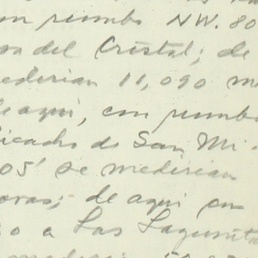 un rumbo NW. 80
del Cristal; de
medirian 11,090 m
de aqui, con rumbo
Picacho de San Mi
05' se medirian
de aqui con
o a Las Lagunit